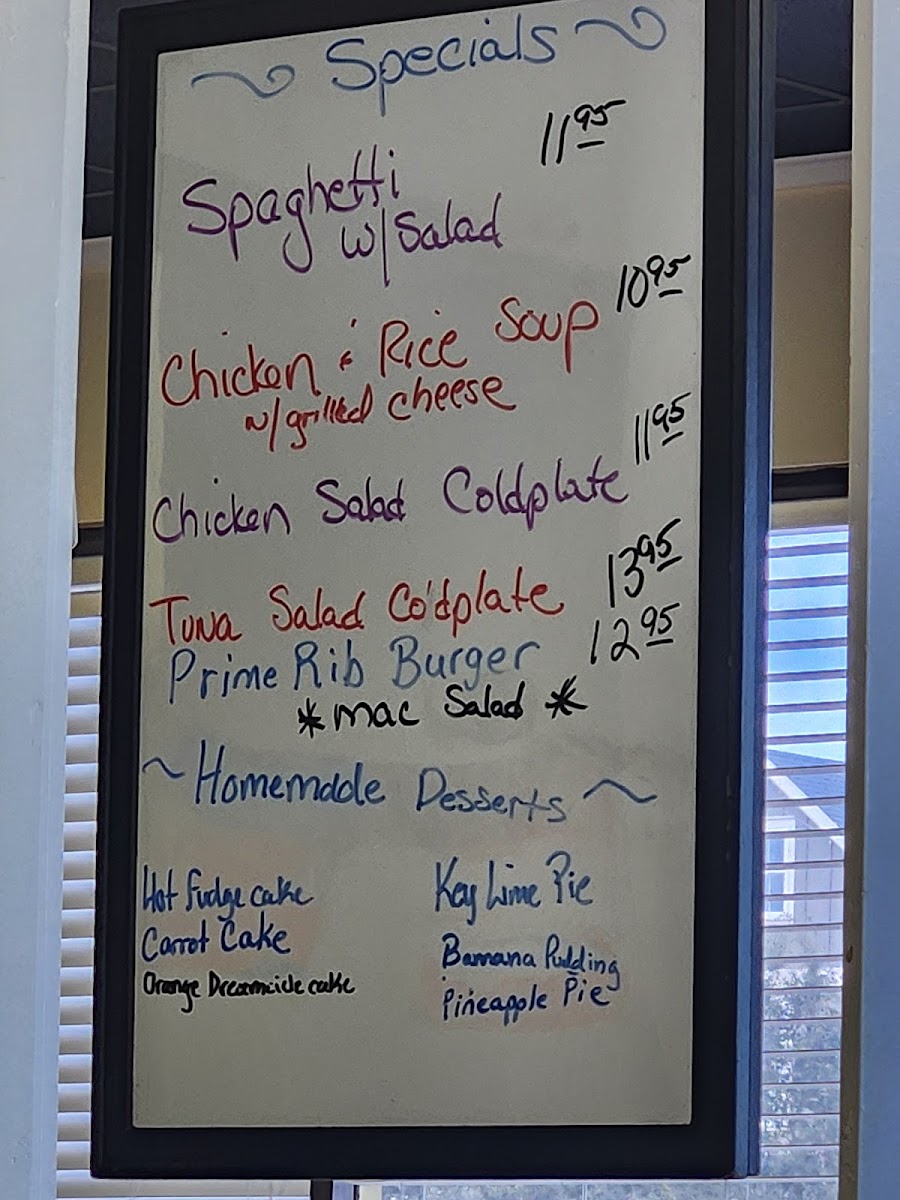 ~ Specials ~
11.95
Spaghetti
w/Salad
10.95
Chicken & Rice Soup
w/grilled cheese
11.95
Chicken Salad Coldplate
13.95
Tuna Salad Coldplate
12.95
Prime Rib Burger
* mac Salad *
~ Homemade Desserts ~
Hot fudge cake
Carrot Cake
Orange Dreamcicle cake
Key Lime Pie
Banana Pudding
Pineapple Pie